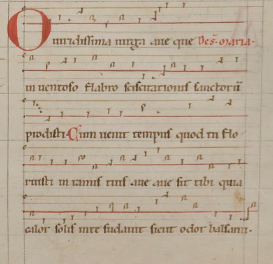 O uiridissima uirga aue que De s. maria.
in uentoso flabro sciscitationis sanctorū
prodisti. Cum uenit tempus quod tu flo
ruisti in ramis tuis aue aue sit tibi quia
calor solis in te sudauit sicut odor balsami.